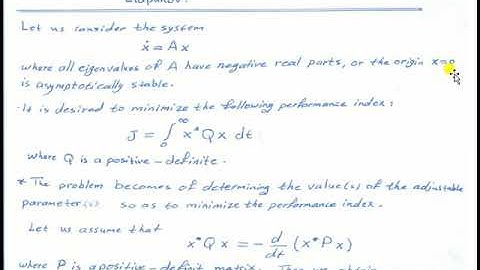 Let us consider the system
ẋ = A x
where all eigenvalues of A have negative real parts, or the origin x=0
is asymptotically stable.
It is desired to minimize the following performance index:
J = ∫₀^∞ x* Q x dt
where Q is a positive-definite.
* The problem becomes of determining the value(s) of the adjustable
parameter(s) so as to minimize the performance index.
Let us assume that
x* Q x = - d/dt (x* P x)
where P is a positive-definite matrix. Then we obtain